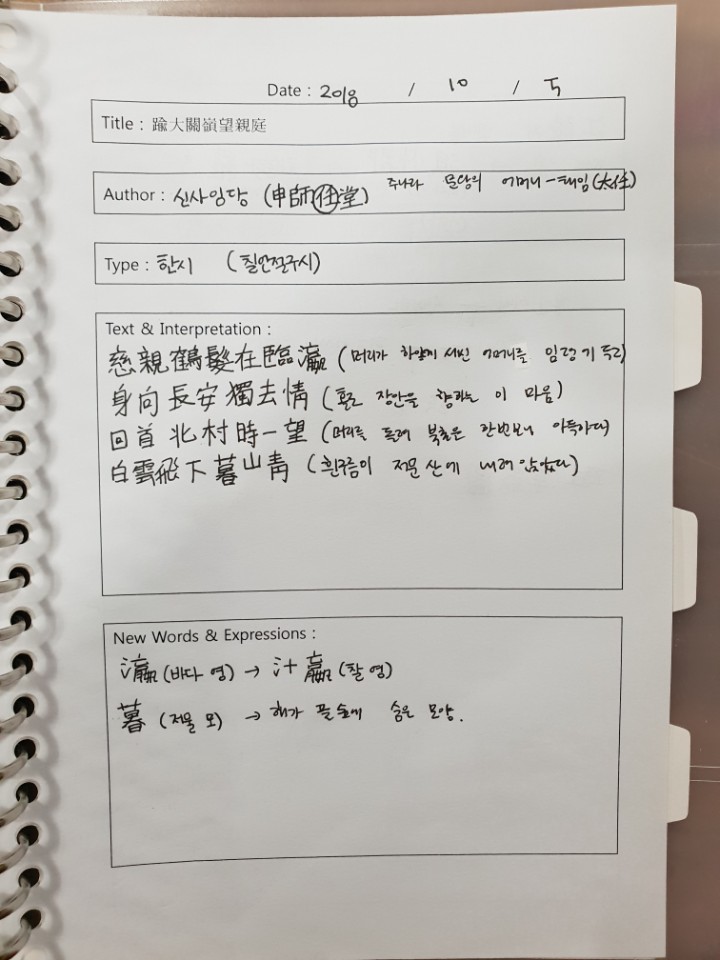 Date : 2018 / 10 / 5
Title : 踰大關嶺望親庭
Author : 신사임당 (申師任堂) 주나라 문왕의 어머니-태임(太任)
Type : 한시 (칠언절구시)
Text & Interpretation :
慈親鶴髮在臨瀛 (머리가 하얗게 세신 어머니를 임영기 두고)
身向長安獨去情 (홀로 장안을 향하는 이 마음)
回首北村時一望 (머리를 돌려 북촌은 한번보니 아득하다)
白雲飛下暮山靑 (흰구름이 저문 산에 내려 앉았다)
New Words & Expressions :
瀛 (바다 영) → 氵+ 嬴 (찰 영)
暮 (저물 모) → 해가 풀숲에 숨은 모양.